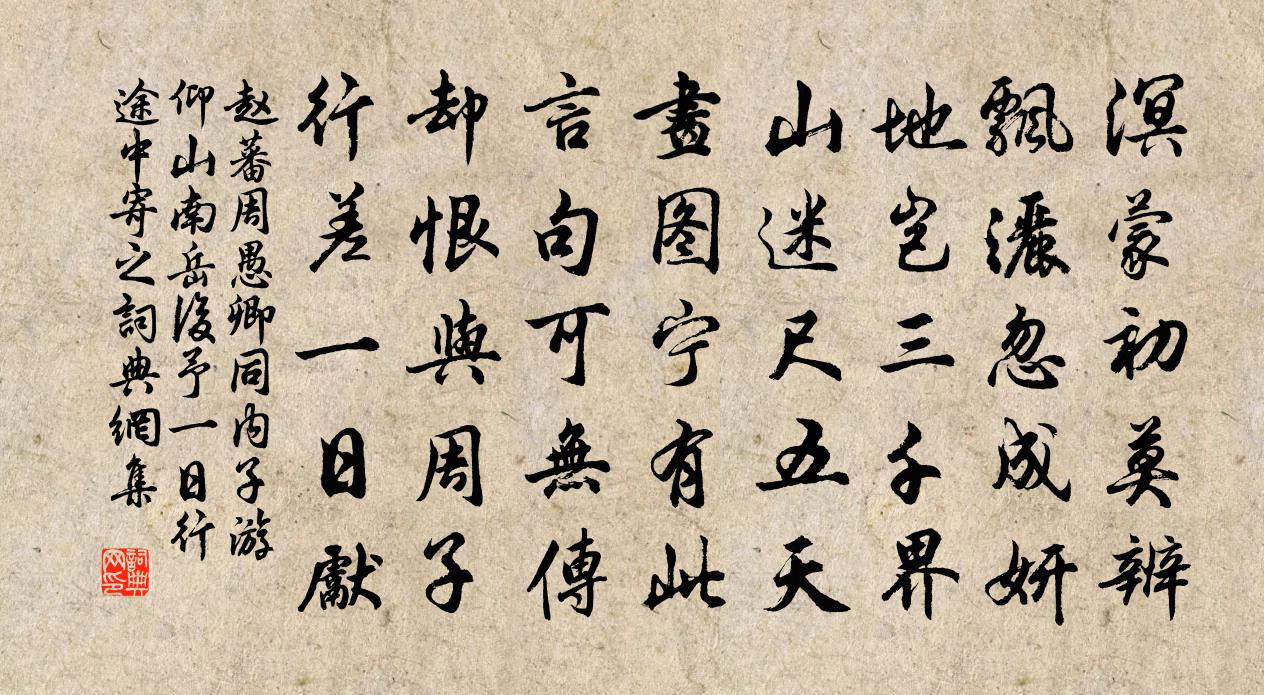 溟蒙初莫辨
飄灑忽成妍
地豈三千界
山迷尺五天
畫图宁有此
言句可無傳
却恨與周子
行差一日獻
赵蕃周愚卿同内子游
仰山南岳後予一日行
途中寄之詞典網集
詞典
网印